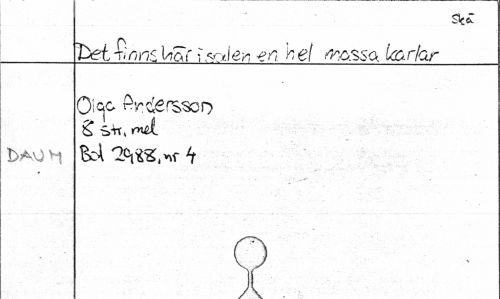 Skä
Det finns här i salen en hel massa karlar
Olga Andersson
8 str, mel
DAUM Bd 2988, nr 4